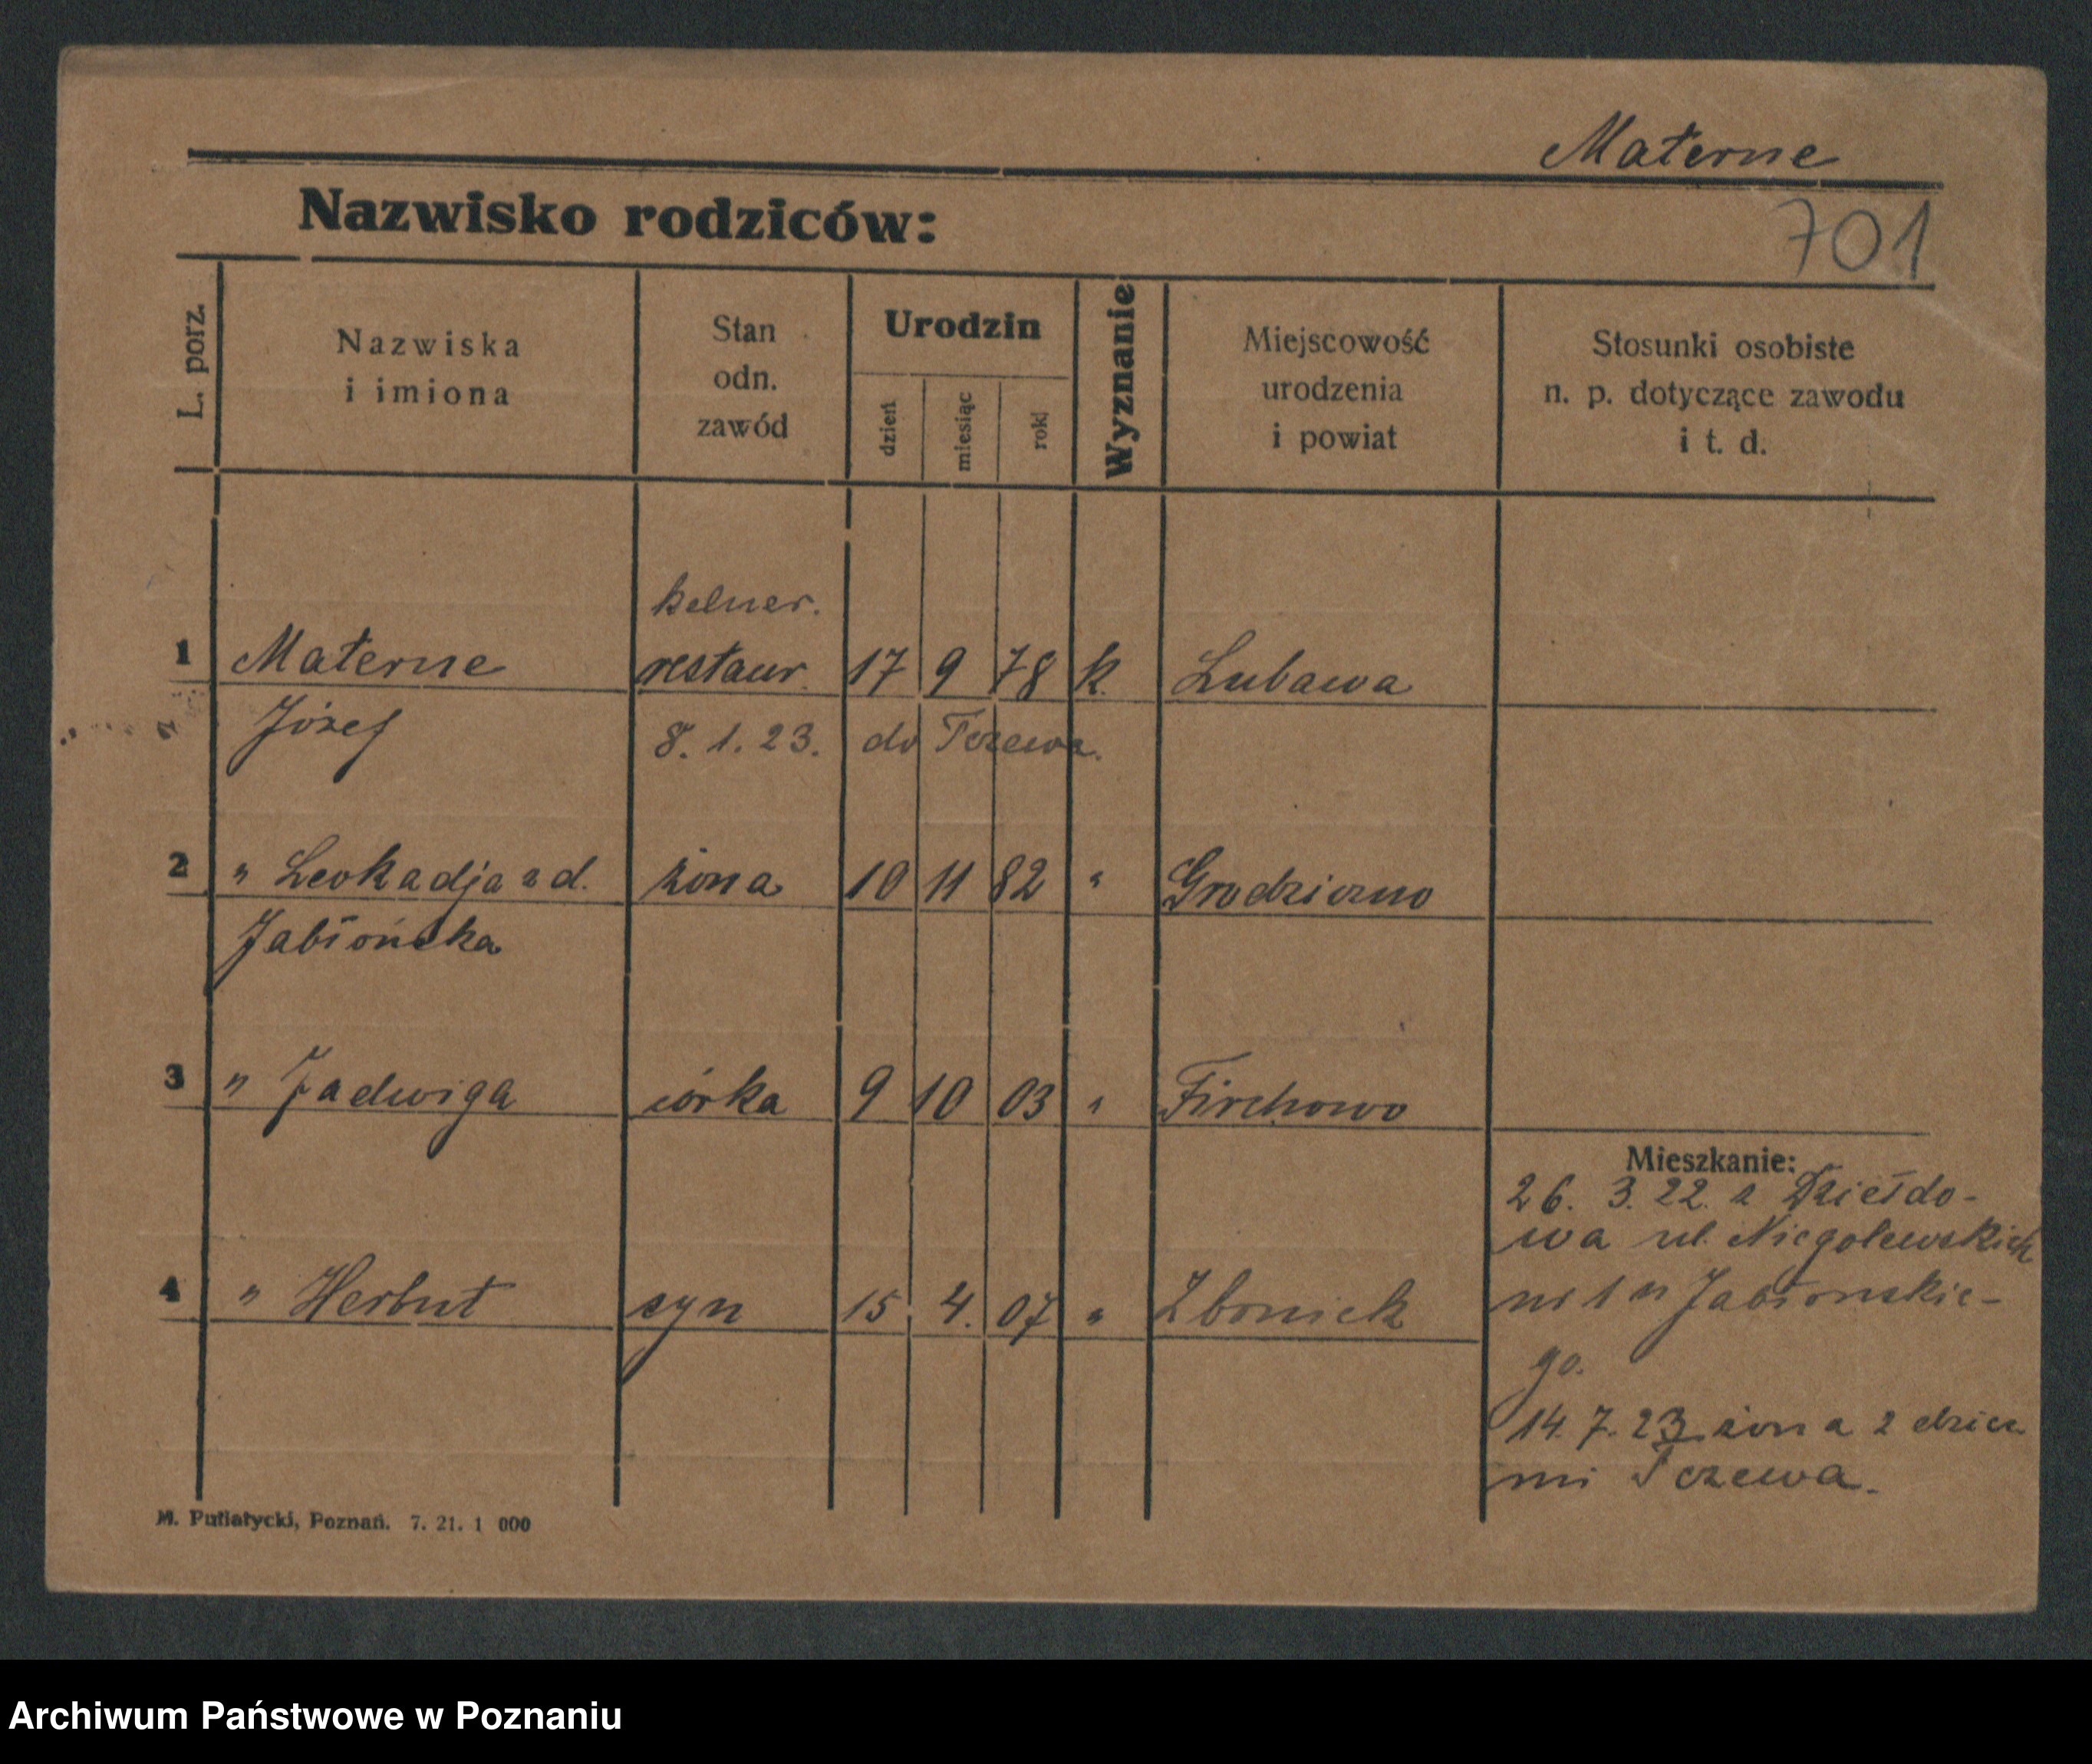 Materne
701
Nazwisko rodziców:
L. porz.
Nazwiska
i imiona
Stan
odn.
zawód
Urodzin
dzień
miesiąc
rok
Wyznanie
Miejscowość
urodzenia
i powiat
Stosunki osobiste
n. p. dotyczące zawodu
i t. d.
kelner.
1 Materne restaur. 17 9 78 k. Lubawa
Józef 8. 1. 23. do Tczewa.
2 " Leokadja z d. żona 10 11 82 " Grodziczno
Jabłońska
3 " Jadwiga córka 9 10 03 " Firchowo
Mieszkanie:
26. 3. 22. z Dziełdo-
wa ul. Niegolewskich
4 " Herbut syn 15. 4. 07 "
nr 1 u Jabłonskie-
go.
14. 7. 23 żona z dzieć
mi Tczewa.
M. Putiatycki, Poznań. 7. 21. 1 000
Archiwum Państwowe w Poznaniu